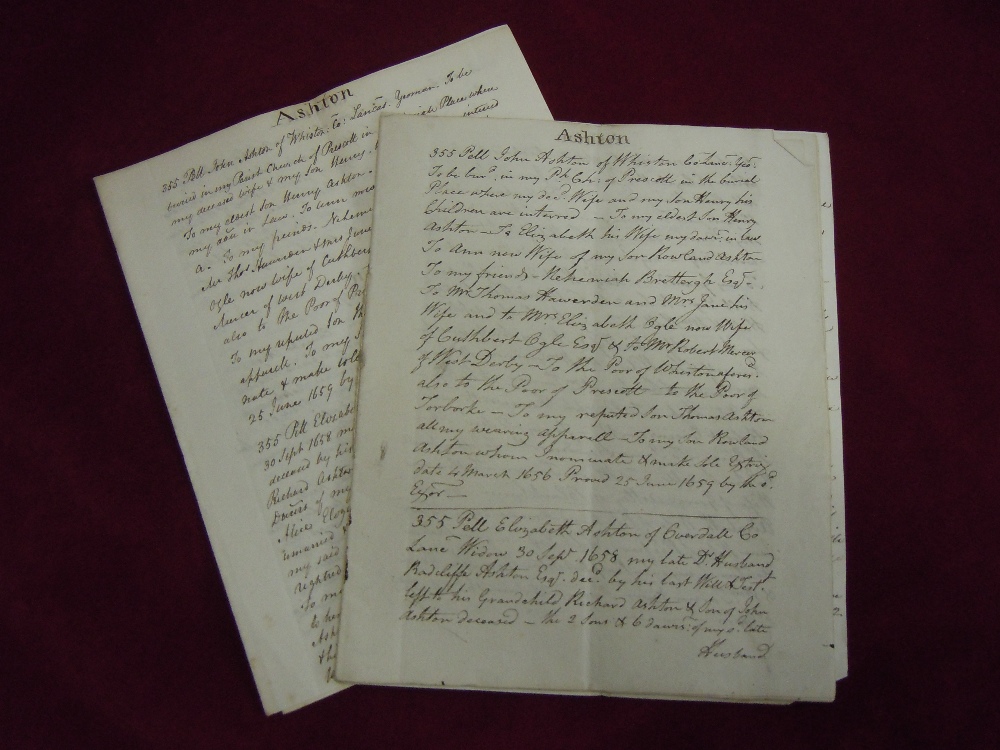 Ashton
355 Pell John Ashton of Whiston Co: Lancas. Yeoman. To be
buried in my Parish Church of Prescott in Place where
my deceased wife & my Son Henry interred
To my eldest Son Henry Ashton.
my dau in Law. To Ann
a. To my friends. Nehem
Mr Thos Hawerden & Mrs Jane
Ogle now wife of Cuthbert
Mercer of West Derby.
also to the Poor of Pr
To my reputed Son Th
apparell. To my S
note & make
25 June 1659 by
355 Pell Elizabe
30 Sept 1658 m
deceased by his
Richard Ashto
of my
Alice Eliz
remained
my said
To m
to he
Ash
& th
Ashton
355 Pell John Ashton of Whiston Co Lanc. Yeo.
To be bur.d in my P.h Ch: of Prescott in the burial
Place where my dec.d Wife and my Son Henry his
Children are interred — To my eldest Son Henry
Ashton — To Elizabeth his Wife my dawr. in law
To Ann now Wife of my Son Rowland Ashton
To my friends — Nehemiah Brettergh Esqr.
To Mr Thomas Hawerden and Mrs Jane his
Wife and to Mrs Elizabeth Ogle now Wife
of Cuthbert Ogle Esqr & to Mr Robert Mercer
of West Derby — To the Poor of Whiston afores.d
also to the Poor of Prescott to the Poor of
Torborke — To my reputed Son Thomas Ashton
all my wearing apparell — To my Son Rowland
Ashton whom I nominate & make Sole Extrix
date 4 March 1656 Proved 25 June 1659 by the s.d
Exor —
355 Pell Elizabeth Ashton of Overdall Co
Lanc Widow 30 Sept 1658 my late Dr Husband
Radcliffe Ashton Esqr. dec.d by his last Will & Test.t
left to his Grandchild Richard Ashton & Son of John
Ashton deceased — the 2 Sons & 6 dawrs. of my s.d late
Husband